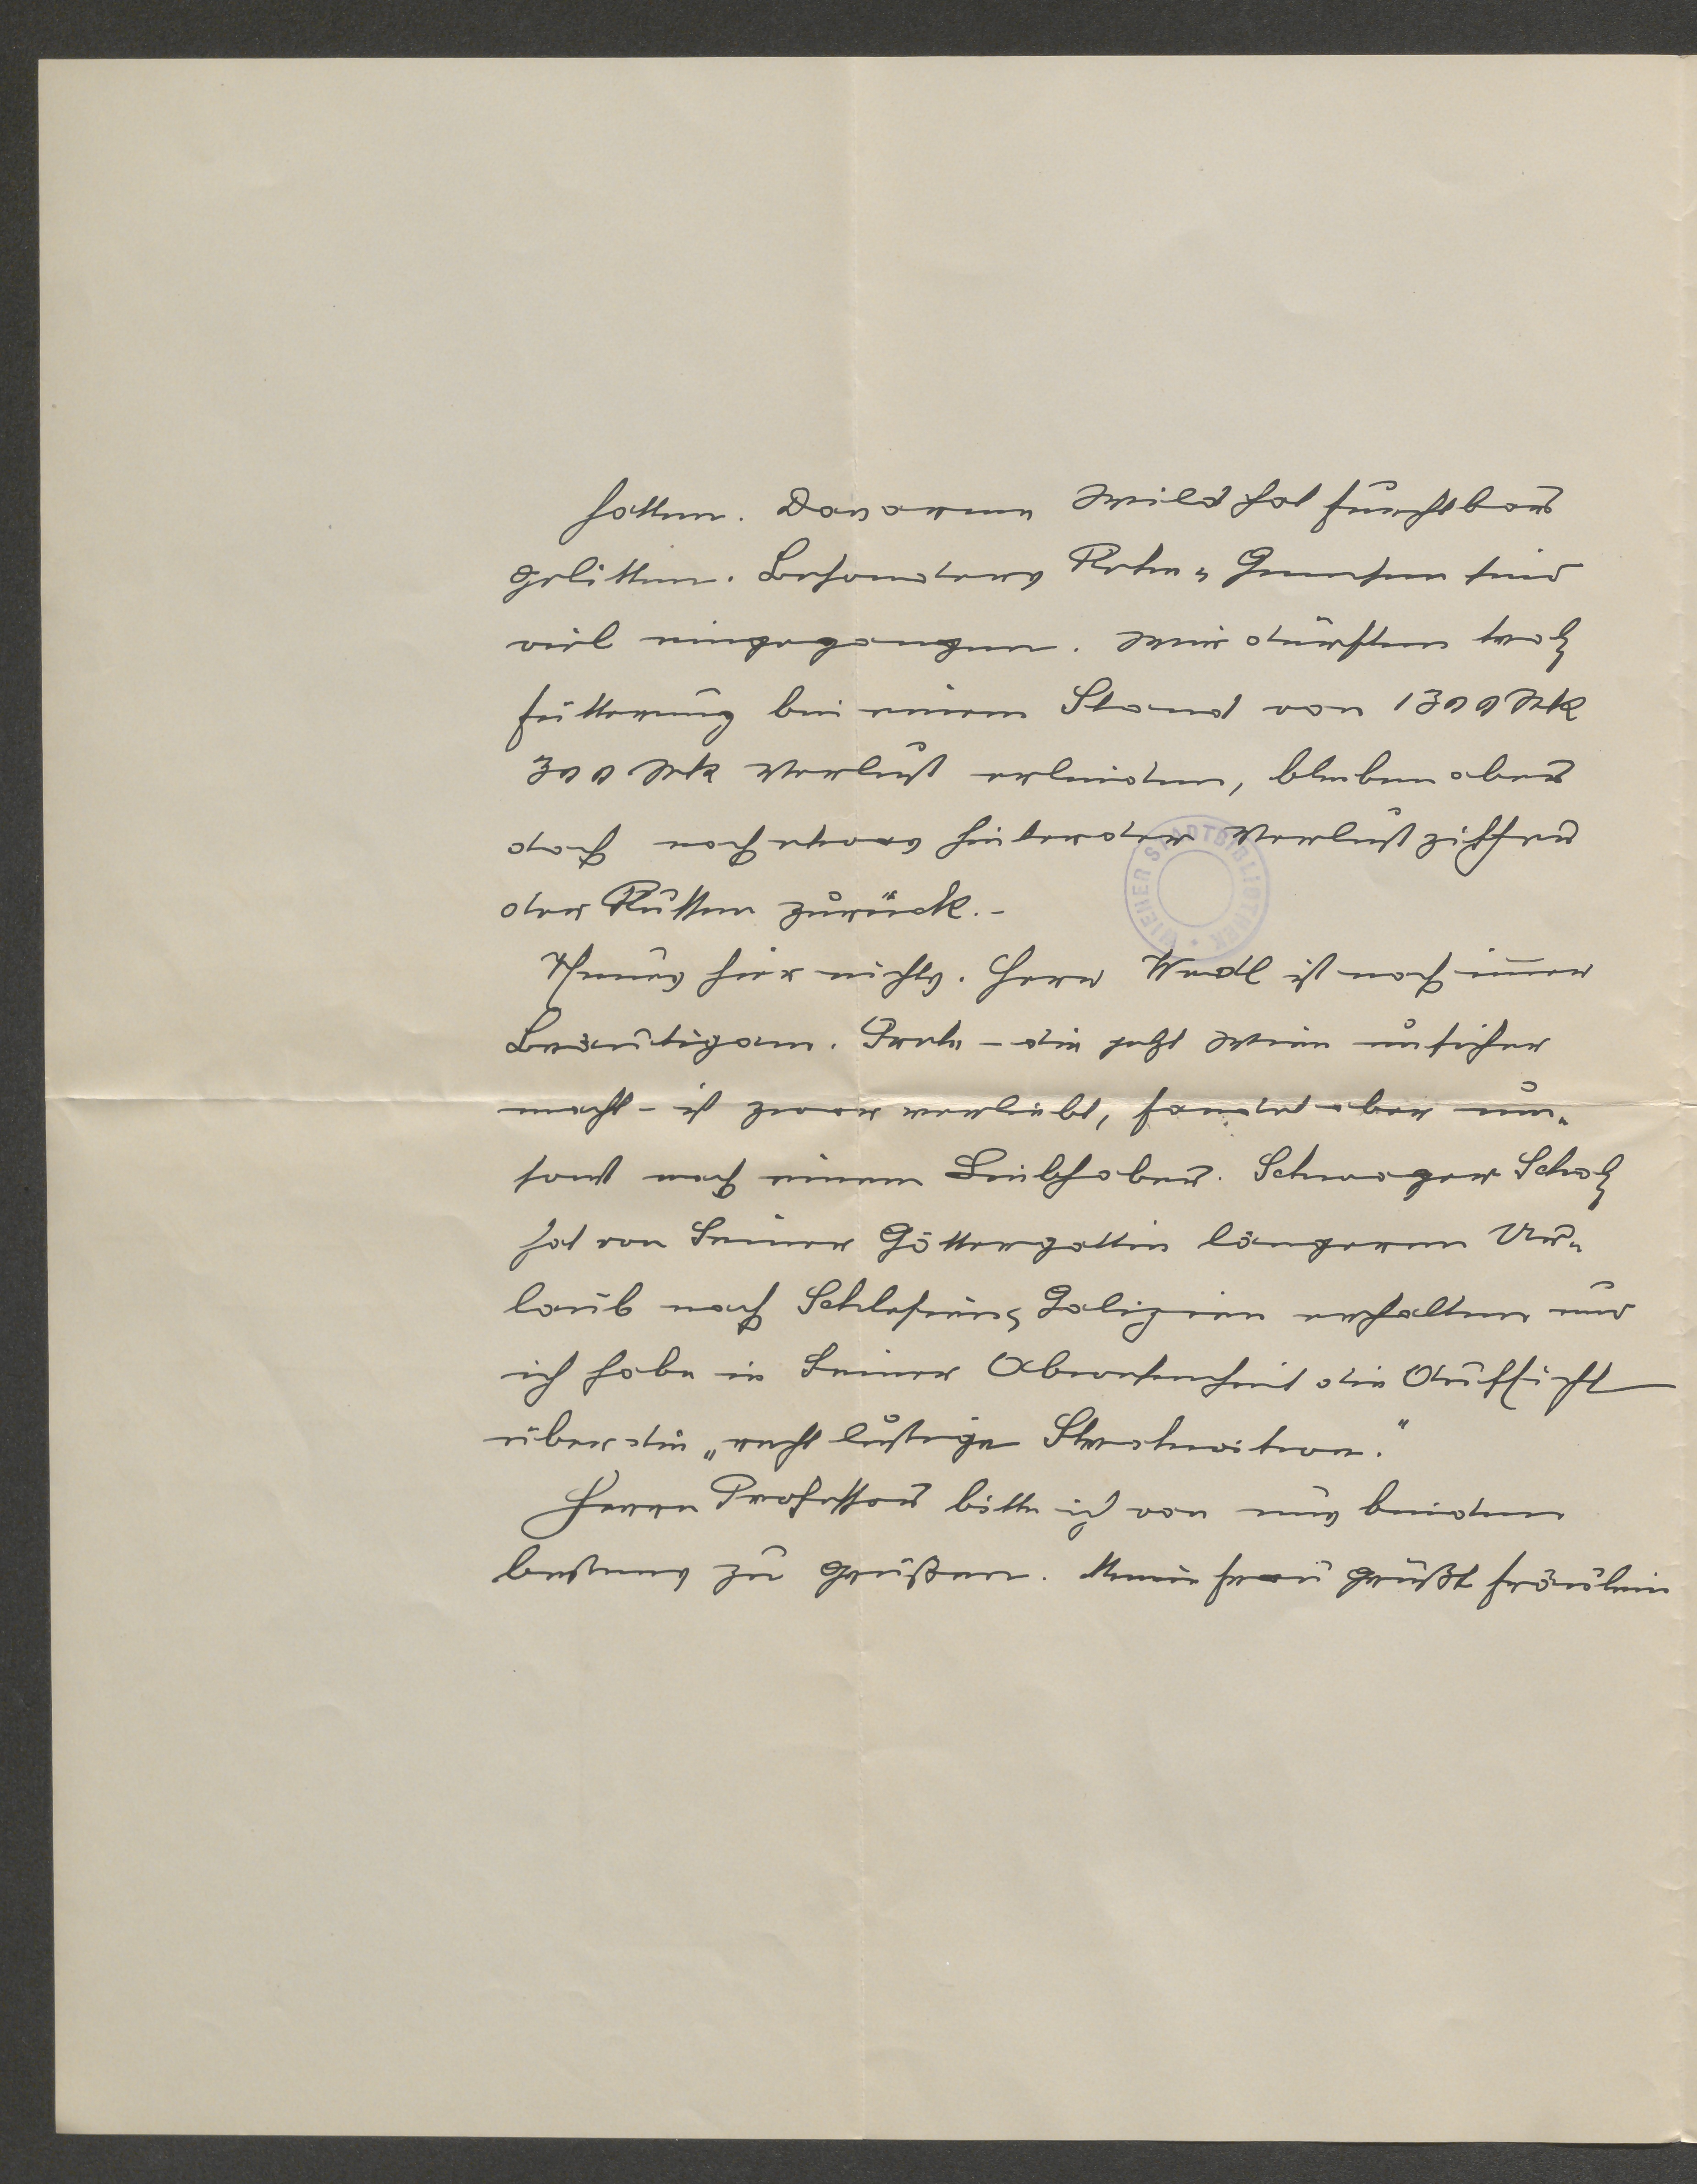 hatten. Das arme Wild hat furchtbar
gelitten. Besonders Rehe u Gemsen sind
viel eingegangen. Wir dürften trotz
Fütterung bei einem Stand von 1300 Stk
300 Stk Verlust erleiden, bleiben aber
doch noch etwas hinter den Verlustziffern
der Russen zurück.-
Neues hier nichts. Herr Wedl ist noch immer
Bräutigam. Grete - die jetzt Wien unsicher
macht - ist zwar verliebt, fandet aber um-
sonst nach einem Liebhaber. Schwager Scholz
hat von Seiner Göttergattin längeren Ur-
laub nach Schlesien u Galizien erhalten und
ich habe in Seiner Abwesenheit die Aufsicht
über die „recht lustige Strohwitwe."
Herrn Professor bitte ich von uns beiden
bestens zu grüßen. Meine Frau grüßt Fräulein
WIENER STADTBIBLIOTHEK